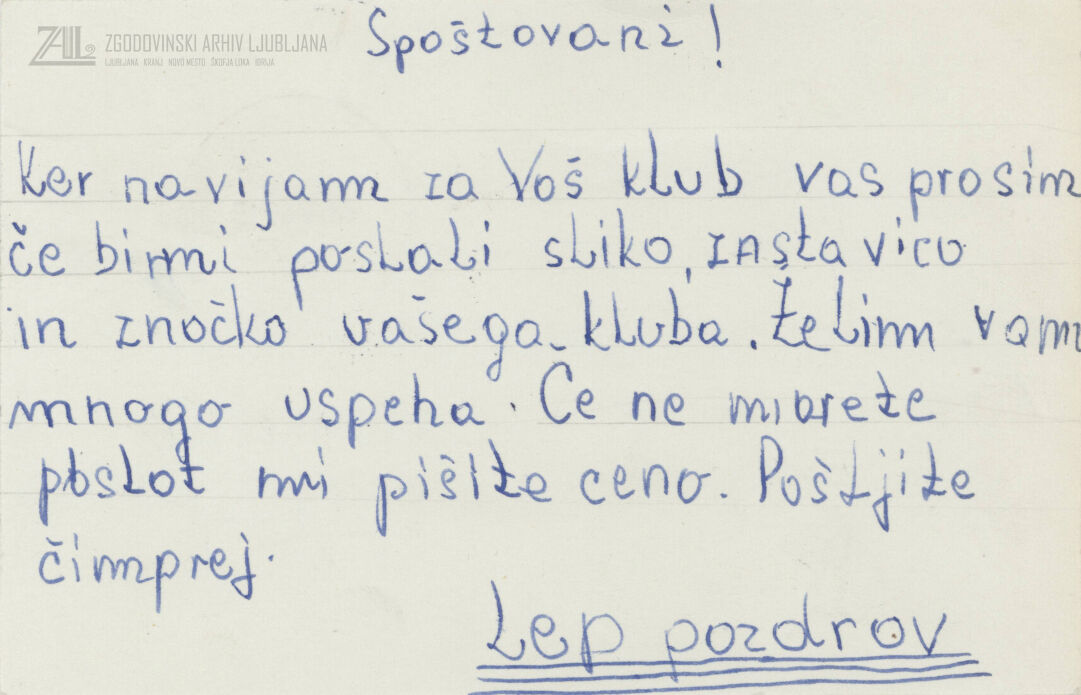 ZAL ZGODOVINSKI ARHIV LJUBLJANA
LJUBLJANA KRANJ NOVO MESTO ŠKOFJA LOKA IDRIJA
Spoštovani!
Ker navijam za Vaš klub vas prosim
če bi mi poslali sliko, zastavico
in značko vašega kluba. Želim vam
mnogo uspeha. Če ne morete
poslat mi pišite ceno. Pošljite
čimprej.
Lep pozdrav